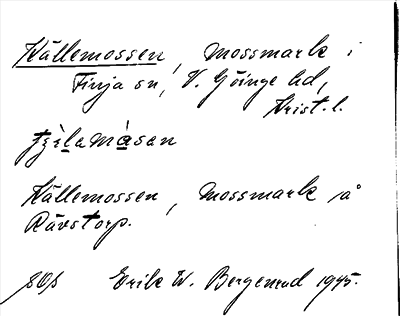 Källemossen, mossmark i
Finja sn, V. Göinge hd,
Krist. l.
tjèlamåsan
Källemossen, mossmark på
Rävstorp.
Erik W. Bergenrud 1945.